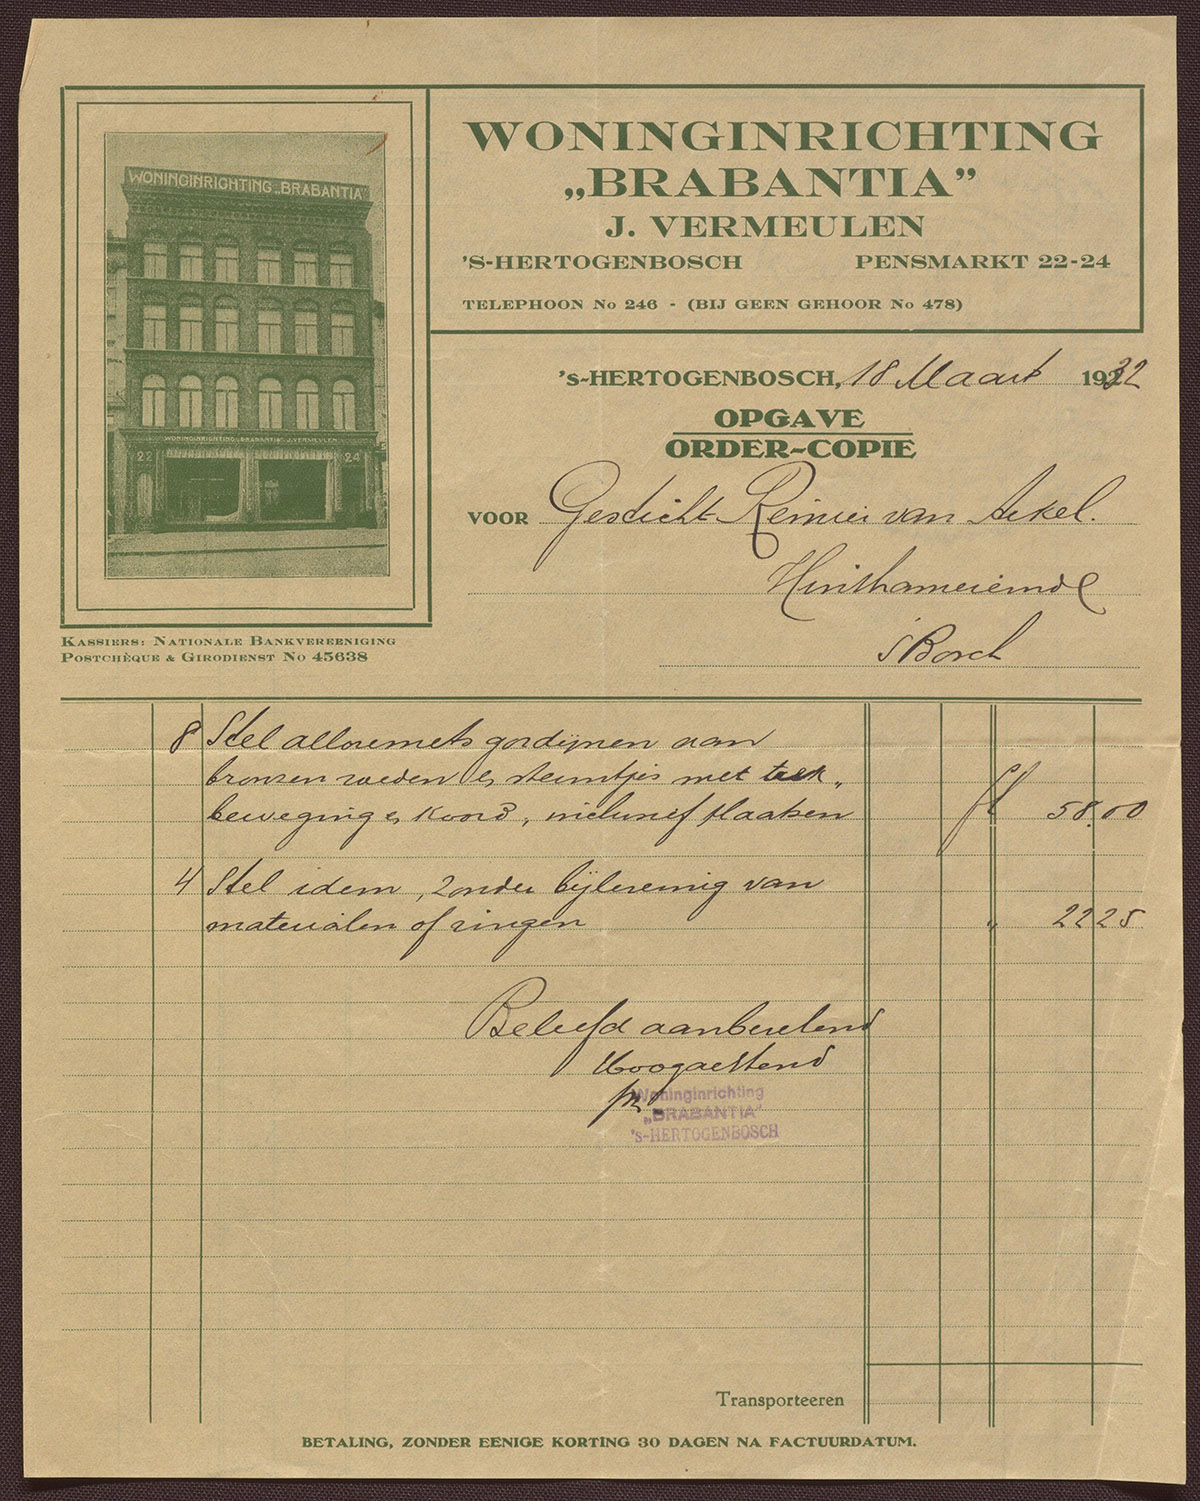 WONINGINRICHTING „BRABANTIA”
WONINGINRICHTING „BRABANTIA” J. VERMEULEN
22
24
WONINGINRICHTING
„BRABANTIA”
J. VERMEULEN
'S-HERTOGENBOSCH PENSMARKT 22-24
TELEPHOON No 246 - (BIJ GEEN GEHOOR No 478)
KASSIERS: NATIONALE BANKVEREENIGING
POSTCHÈQUE & GIRODIENST No 45638
's-HERTOGENBOSCH, 18 Maart 1932
OPGAVE
ORDER-COPIE
VOOR Gesticht Reinier van Arkel.
Hinthamereinde
's Bosch
8 Stel gordijnen aan
bronzen roeden & steuntjes met trek„
beweging & koord, plaatsen
fl 58,00
4 Stel idem, zonder bijlevering van
materialen of ringen " 22 25
Beleefd aanbevelend
Hoogachtend
Woninginrichting
„BRABANTIA”
's-HERTOGENBOSCH
Transporteeren
BETALING, ZONDER EENIGE KORTING 30 DAGEN NA FACTUURDATUM.